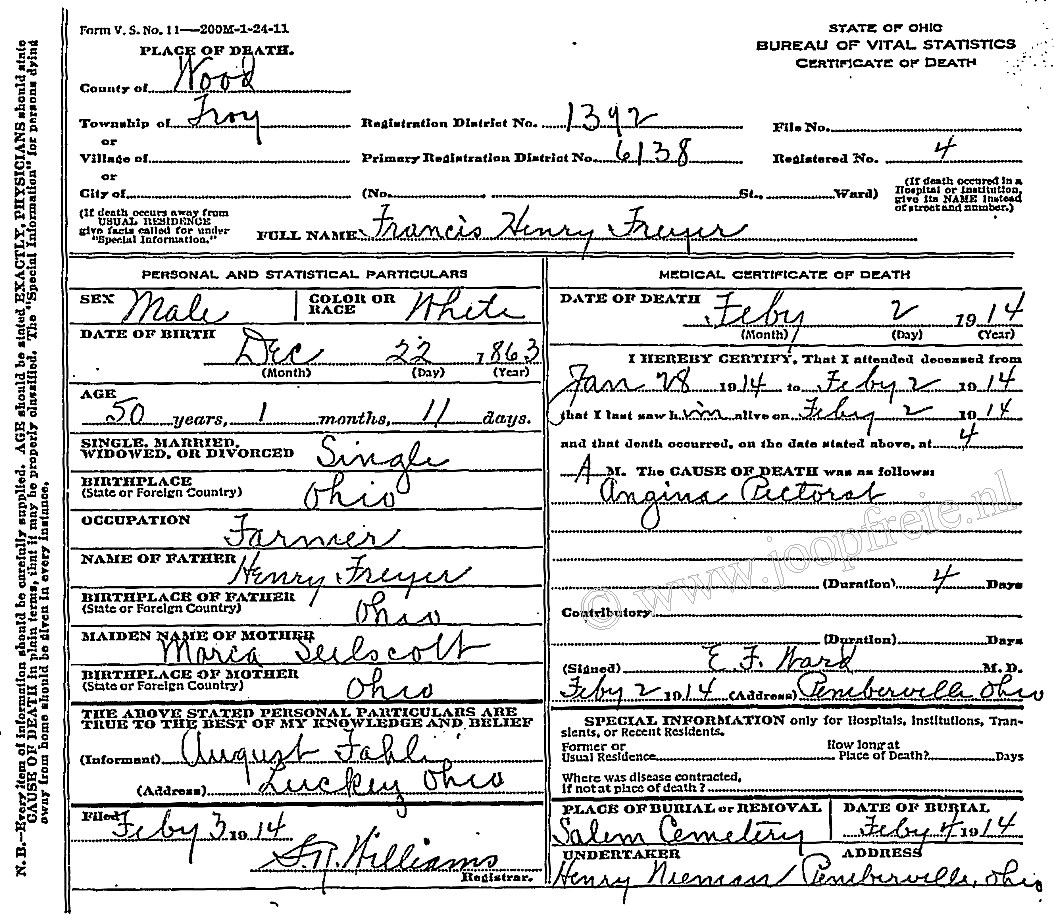 Form V. S. No. 11—200M-1-24-11
STATE OF OHIO
BUREAU OF VITAL STATISTICS
CERTIFICATE OF DEATH
PLACE OF DEATH.
County of Wood
Township of Troy
or
Village of
or
City of
Registration District No. 1392
Primary Registration District No. 6138
(No. St., Ward)
File No.
Registered No. 4
(If death occured in a
Hospital or Institution,
give its NAME instead
of street and number.)
(If death occurs away from
USUAL RESIDENCE
give facts called for under
"Special Information.")
FULL NAME Francis Henry Freyer
PERSONAL AND STATISTICAL PARTICULARS
SEX Male
COLOR OR RACE White
DATE OF BIRTH
Dec 22 1863
(Month) (Day) (Year)
AGE
50 years, 1 months, 11 days.
SINGLE, MARRIED,
WIDOWED, OR DIVORCED Single
BIRTHPLACE
(State or Foreign Country) Ohio
OCCUPATION
Farmer
NAME OF FATHER Henry Freyer
BIRTHPLACE OF FATHER
(State or Foreign Country) Ohio
MAIDEN NAME OF MOTHER
Maria
BIRTHPLACE OF MOTHER
(State or Foreign Country) Ohio
THE ABOVE STATED PERSONAL PARTICULARS ARE
TRUE TO THE BEST OF MY KNOWLEDGE AND BELIEF
(Informant) August
(Address) Luckey Ohio
Filed
Feby 3 1914
Williams
Registrar.
MEDICAL CERTIFICATE OF DEATH
DATE OF DEATH Feby 2 1914
(Month) (Day) (Year)
I HEREBY CERTIFY, That I attended deceased from
Jan 28 1914 to Feby 2 1914
that I last saw him alive on Feby 2 1914
and that death occurred, on the date stated above, at 4
A M. The CAUSE OF DEATH was as follows:
Angina Pectoral
(Duration) 4 Days
Contributory
(Duration) Days
(Signed) E. F. Ward M. D.
Feby 2 1914 (Address) Pemberville Ohio
SPECIAL INFORMATION only for Hospitals, Institutions, Tran-
sients, or Recent Residents.
Former or
Usual Residence
How long at
Place of Death? Days
Where was disease contracted,
if not at place of death?
PLACE OF BURIAL or REMOVAL
Salem Cemetery
DATE OF BURIAL
Feby 4 1914
UNDERTAKER
Henry Nieman
ADDRESS
Pemberville, Ohio
N. B.—Every item of information should be carefully supplied. AGE should be stated EXACTLY, PHYSICIANS should state
CAUSE OF DEATH in plain terms, that it may be properly classified. The "Special Information" for persons dying
away from home should be given in every instance.
© www.joopfreie.nl